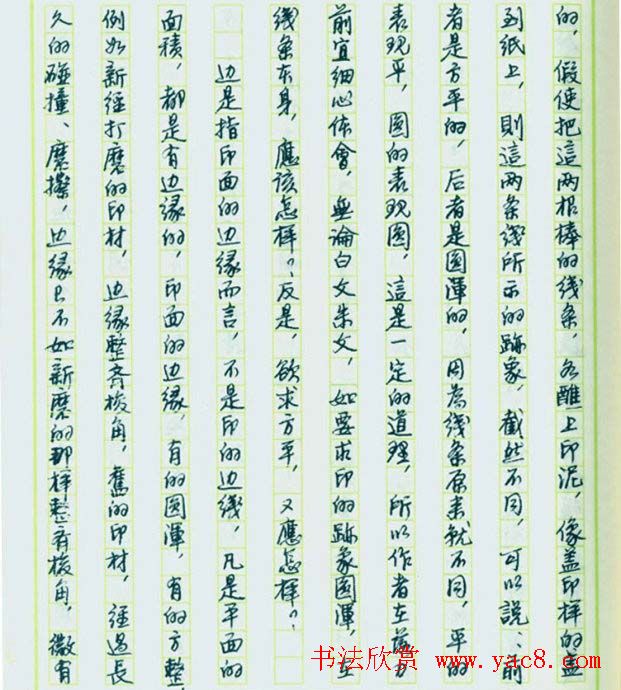 的，假使把這两根棒的线条，各醮上印泥，像盖印样的盖
到纸上，則這两条綫所示的跡象，截然不同，可以說：前
者是方平的，后者是圆渾的，因為綫条原来就不同，平的
表现平，圆的表现圆，這是一定的道理，所以作者在落刀
前宜细心体會，無論白文朱文，如要求印的跡象圆渾，在
綫条本身，應该怎样？反是，欲求方平，又應怎样？
边是指印面的边缘而言，不是印的边綫，凡是平面的
面積，都是有边缘的，印面的边缘，有的圆渾，有的方整，
例如新经打磨的印材，边缘整齐棱角，舊的印材，经過長
久的碰撞、磨擦，边缘已不如新磨的那样整齐棱角，微有
书法欣赏 www.yac8.com